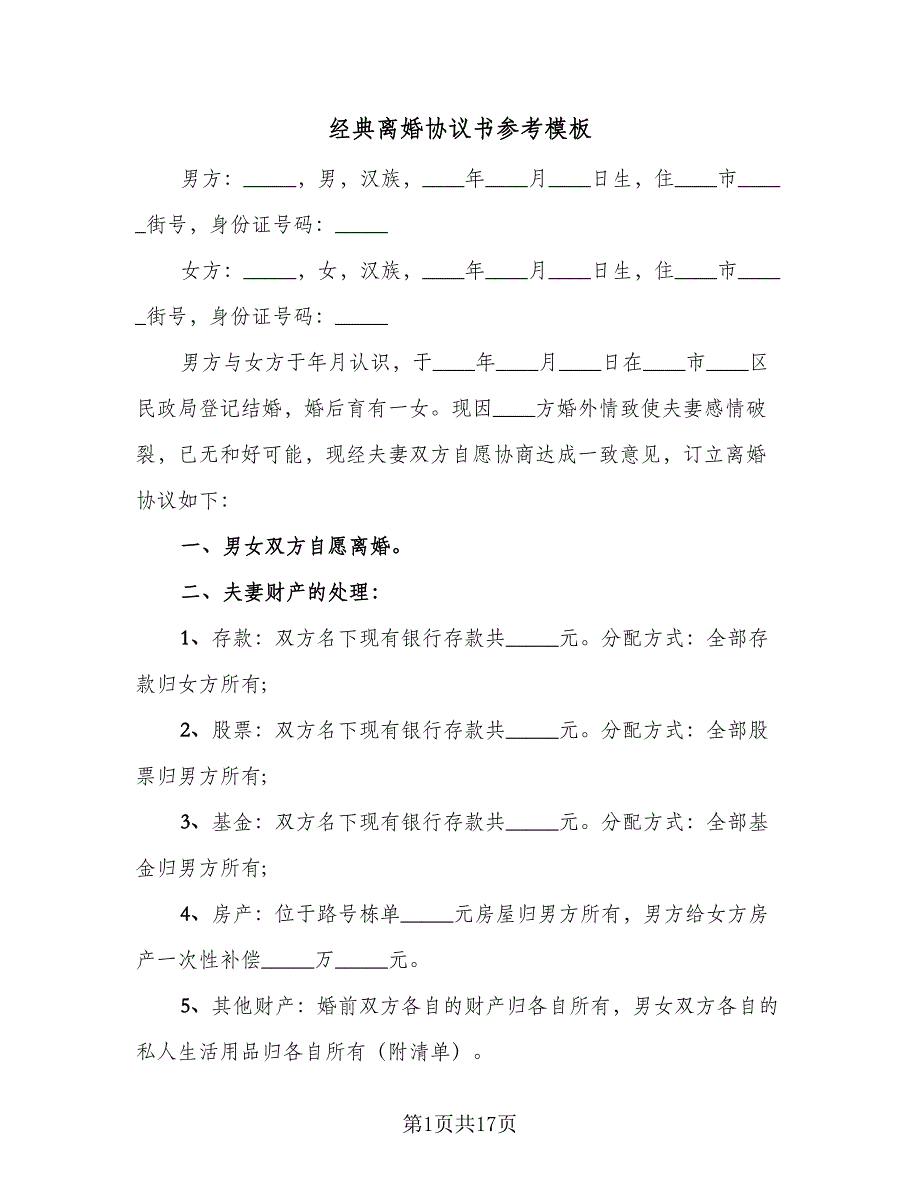 经典离婚协议书参考模板
男方：_____，男，汉族，____年____月____日生，住____市____
_街号，身份证号码：_____
女方：_____，女，汉族，____年____月____日生，住____市____
_街号，身份证号码：_____
男方与女方于年月认识，于____年____月____日在____市____区
民政局登记结婚，婚后育有一女。现因____方婚外情致使夫妻感情破
裂，已无和好可能，现经夫妻双方自愿协商达成一致意见，订立离婚
协议如下：
一、男女双方自愿离婚。
二、夫妻财产的处理：
1、存款：双方名下现有银行存款共_____元。分配方式：全部存
款归女方所有;
2、股票：双方名下现有银行存款共_____元。分配方式：全部股
票归男方所有;
3、基金：双方名下现有银行存款共_____元。分配方式：全部基
金归男方所有;
4、房产：位于路号栋单_____元房屋归男方所有，男方给女方房
产一次性补偿_____万_____元。
5、其他财产：婚前双方各自的财产归各自所有，男女双方各自的
私人生活用品归各自所有（附清单）。
第1页共17页